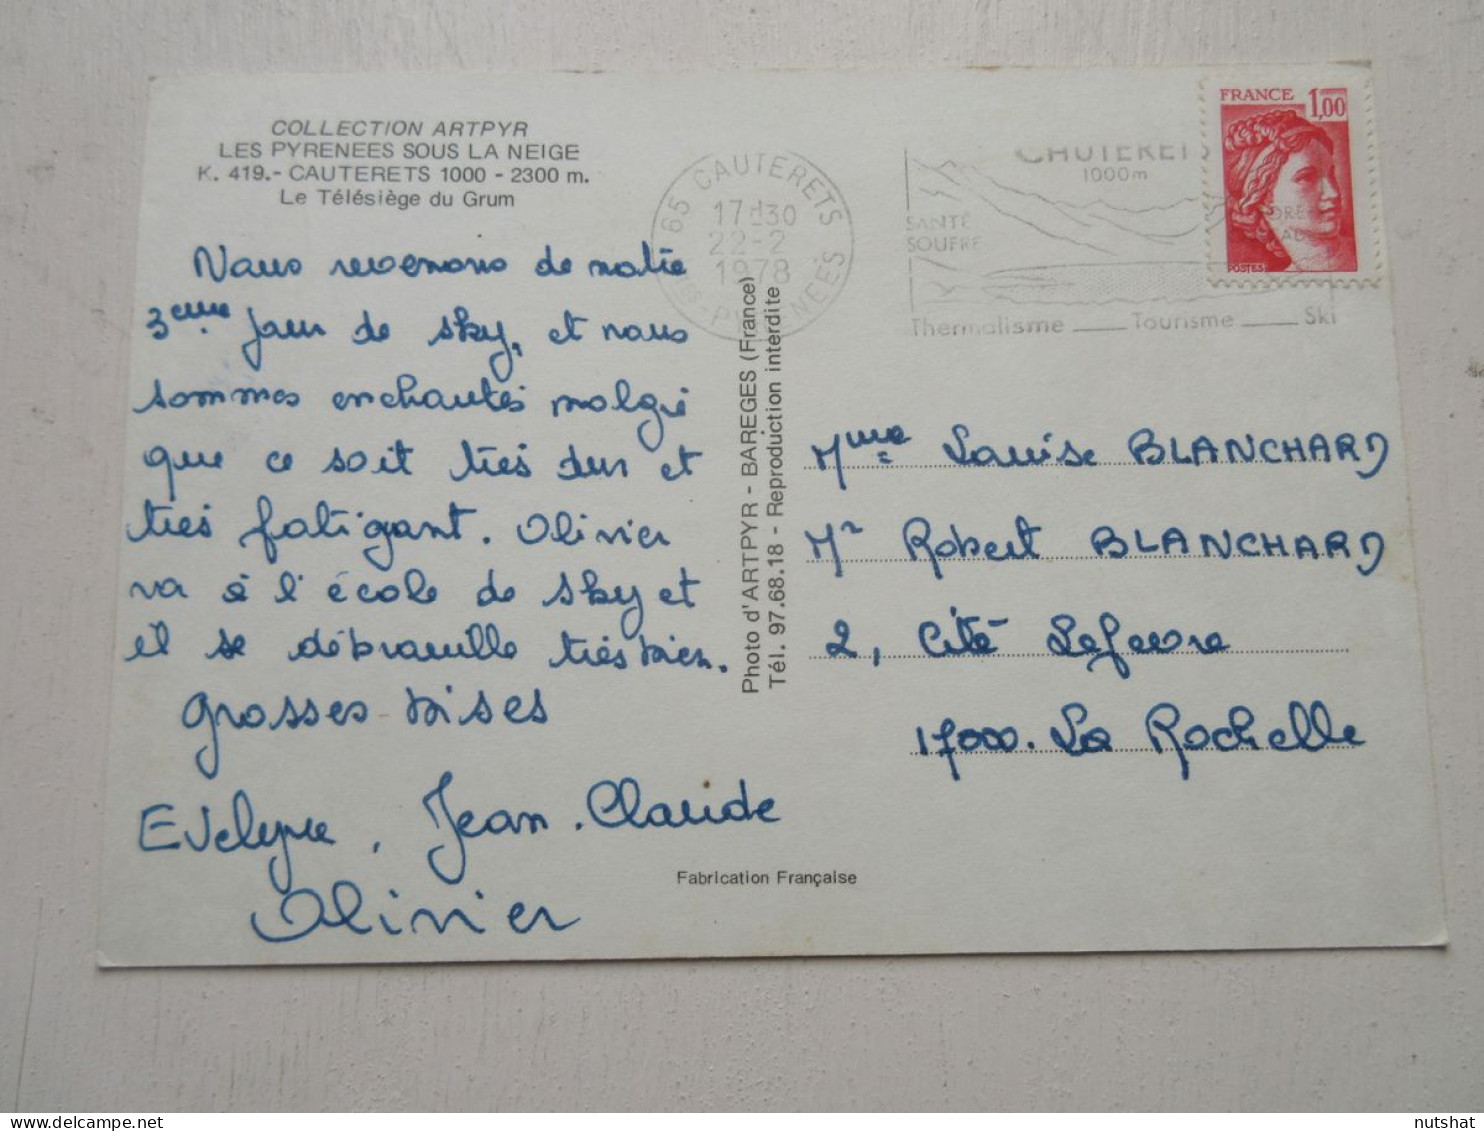 COLLECTION ARTPYR
LES PYRENEES SOUS LA NEIGE
K. 419.- CAUTERETS 1000 - 2300 m.
Le Télésiège du Grum
Nous revenons de notre
3ème jour de sky, et nous
sommes enchantés malgré
que ce soit très dur et
très fatigant. Olivier
va à l'école de sky et
il se débrouille très bien.
grosses bises
Evelyne, Jean.Claude
Olivier
65 CAUTERETS
17H30
22-2
1978
PYRENEES
CAUTERETS
1000m
SANTÉ
SOUFRE
Thermalisme ___ Tourisme ___ Ski
FRANCE 1,00
POSTES
Photo d'ARTPYR - BAREGES (France)
Tél. 97.68.18 - Reproduction interdite
Mme Louise BLANCHARD
Mr Robert BLANCHARD
2, Cité Lefevre
17000. La Rochelle
Fabrication Française
nutshat